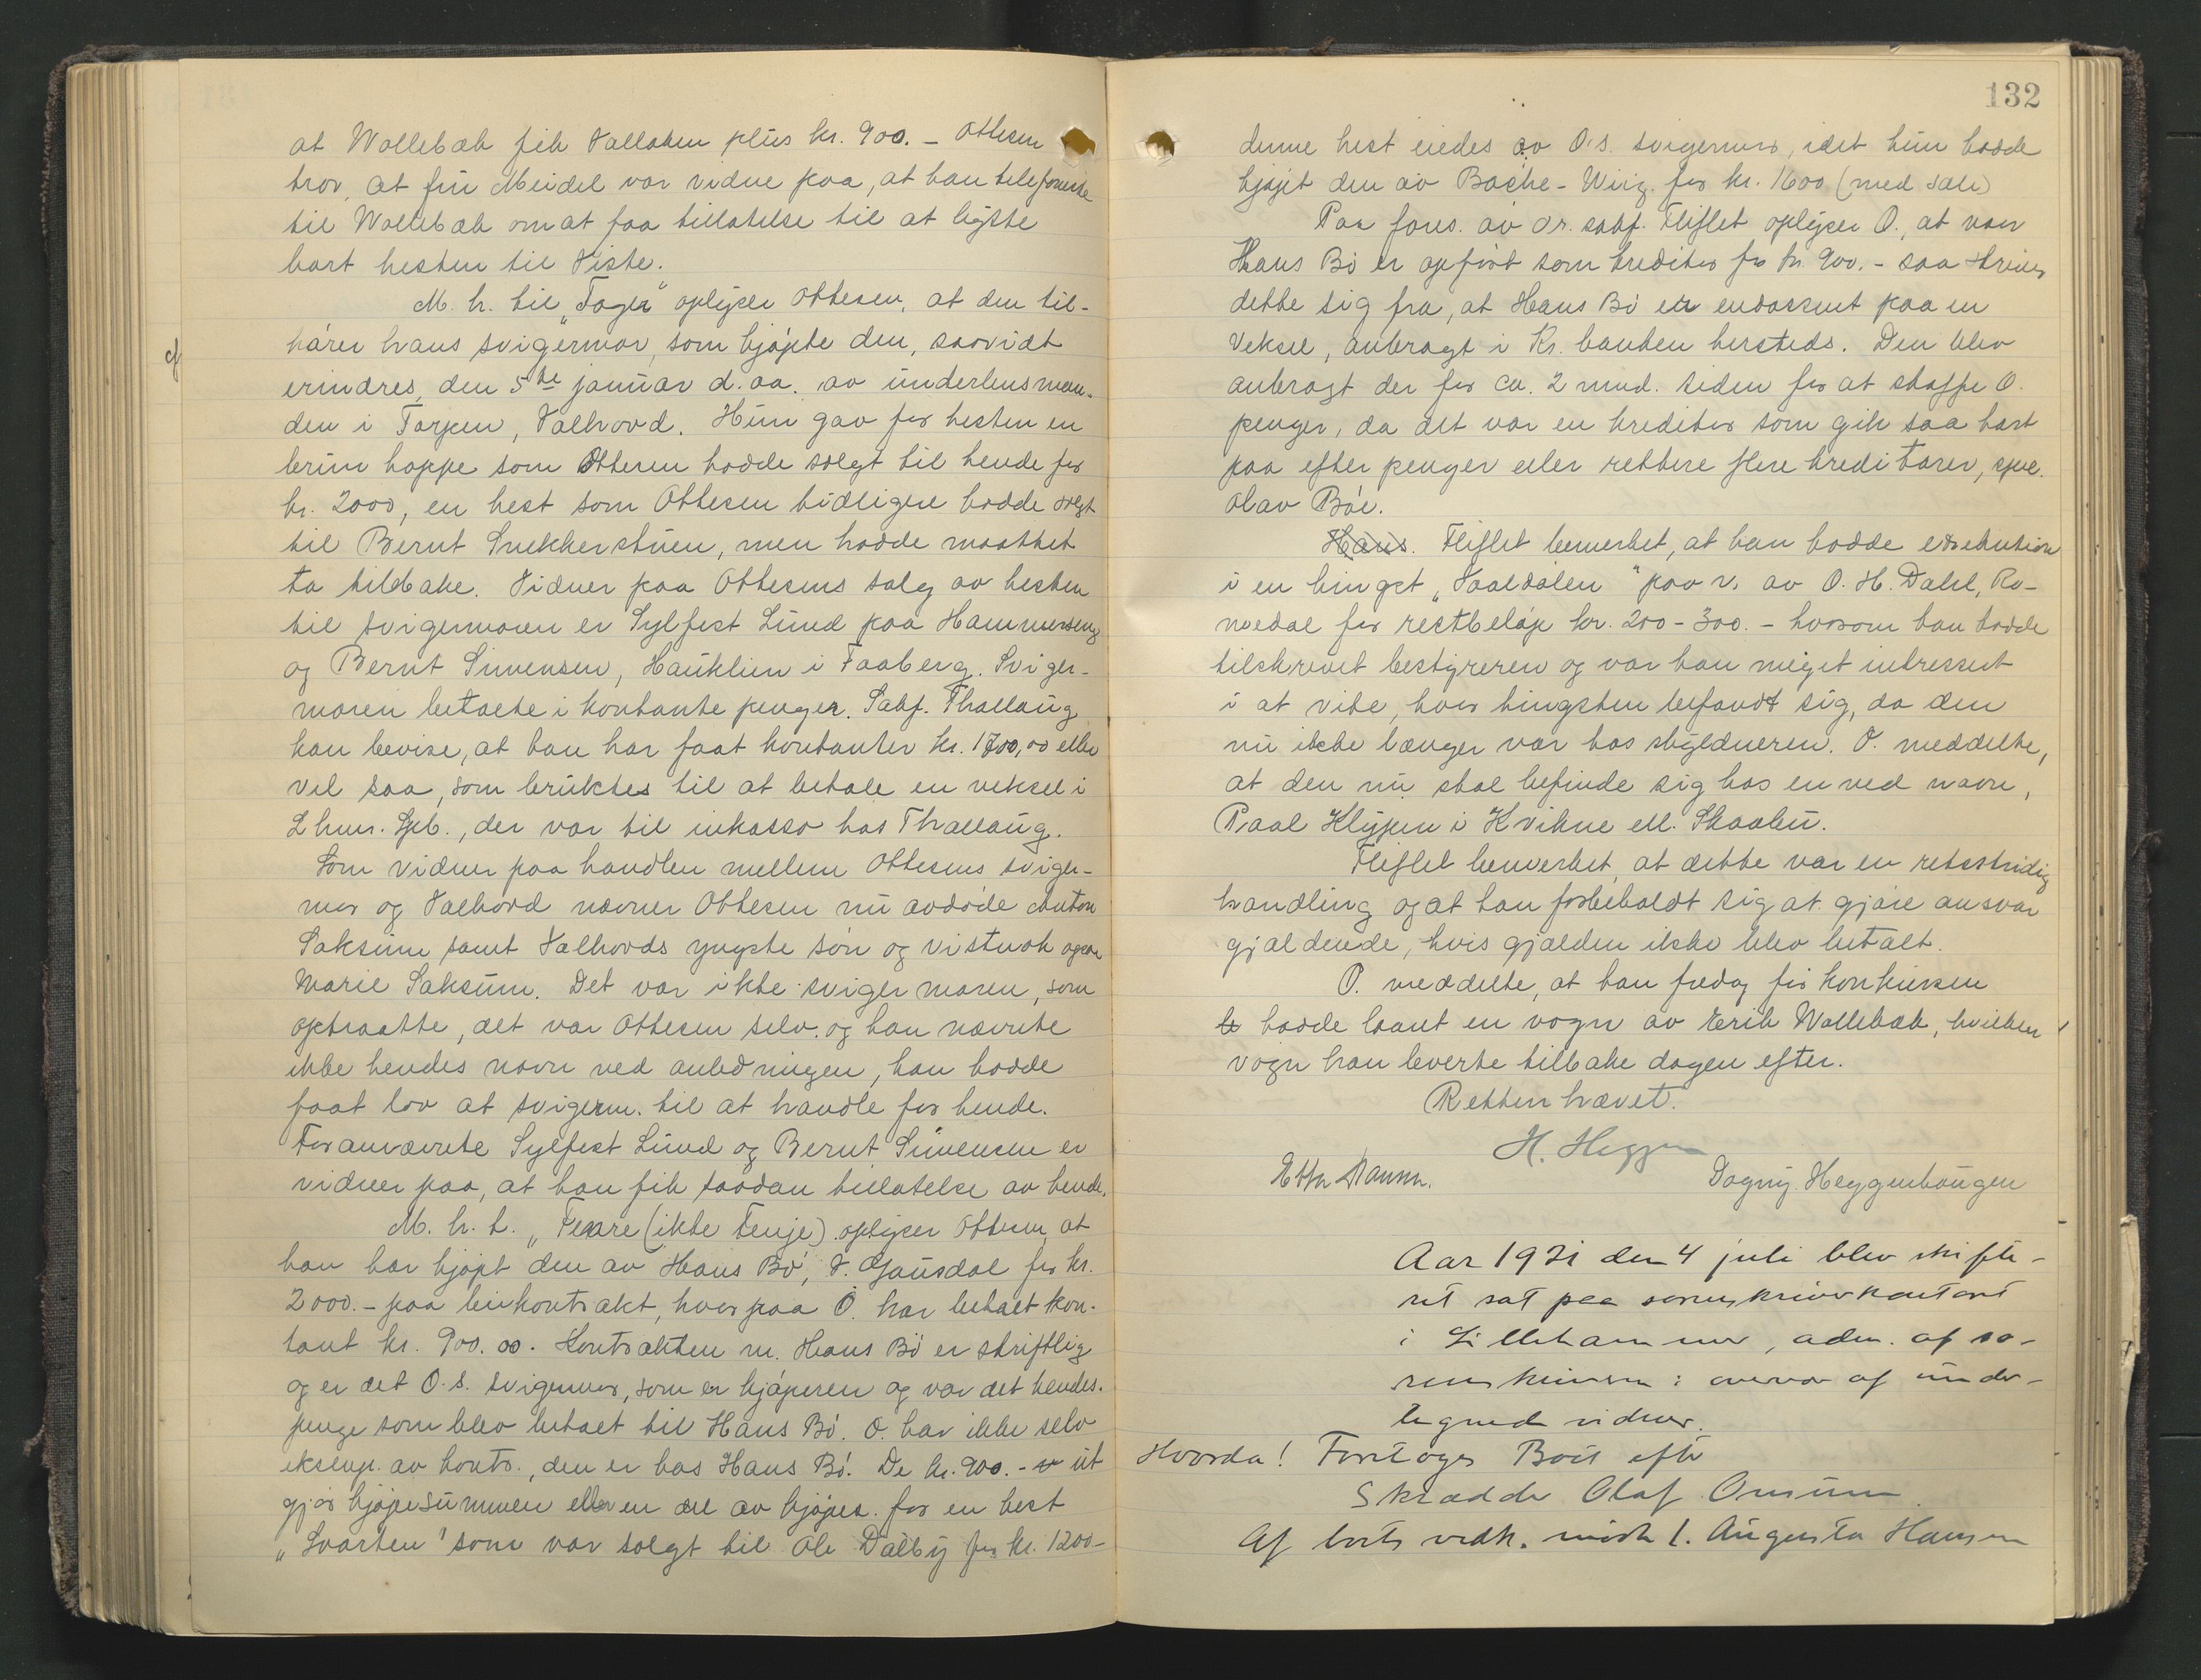 at Wollebæk fik Valloken plus kr. 900. - Ottesen
tror, at fru Meidel var vidne paa, at han telefonerte
til Wollebæk om at faa tillatelse til at bytte
bort hesten til Viste.
M. h. til "Fager" oplyser Ottesen, at den til-
hører hans svigermor, som kjøpte den, saavidt
cf
erindres, den 5te januar d. aa. av underlensman-
den i Torpen, Valhovd. Hun gav for hesten en
brun hoppe som Ottesen hadde solgt til hende for
kr. 2000, en hest som Ottesen tidligere hadde solgt
til Bernt Snekkerstuen, men hadde maattet
ta tilbake. Vidner paa Ottesens salg av hesten
til svigermoren er Sylfest Lund paa Hammerseng
og Bernt Simensen, Hauklien i Faaberg. Sviger-
moren betalte i kontante penger. Sakf. Thallaug
kan bevise, at han har faat kontanter kr. 1700,00 eller
vel saa, som bruktes til at betale en veksel i
Lhmr. Spb., der var til inkasso hos Thallaug.
Som vidner paa handlen mellem Ottesens sviger-
mor og Valhovd nævner Ottesen nu avdøde Anton
Saksum samt Valhovds yngste søn og vistnok ogsaa
Marie Saksum. Det var ikke svigermoren, som
optraatte, det var Ottesen selv. og han nævnte
ikke hendes navn ved anledningen, han hadde
faat lov at svigerm. til at handle for hende.
Foranævnte Sylfest Lund og Bernt Simensen er
vidner paa, at han fik saadan tillatelse av hende.
M. h. t. "Feare (ikke Fenje) oplyser Ottesen, at
han har kjøpt den av Hans Bø, V. Gausdal for kr.
2000. - paa leiekontrakt, hvorpaa O. har betalt kon-
tant kr. 900.00. Kontrakten m. Hans Bø er skriftlig
og er det O.s. svigermor, som er kjøperen og var det hendes.
penge som blev betalt til Hans Bø. O. har ikke selv
eksempl. av kontr., den er hos Hans Bø. De kr. 900. - ut
gjør kjøpesummen eller en del av kjøpes. for en hest
"Svarten" som var solgt til Ole Dalby for kr. 1200-
132
denne hest eiedes av O.s. svigermor, idet hun hadde
kjøpt den av Bache-Wiig for kr. 1600 (med sæle)
Paa fores. av or. sakf. Fliflet oplyser O., at naar
Hans Bø er opført som kreditor for kr. 900. - saa skriver
dette sig fra, at Hans Bø er endossent paa en
veksel, anbragt i Kr. banken hersteds. Den blev
anbragt der for ca. 2 mnd. siden for at skaffe O.
penger, da det var en kreditor som gik saa hart
paa efter penger eller rettere flere kreditorer, spec.
Olav Bøe.
Hans. Fliflet bemerket, at han hadde exekution
i en hingst "Vaaldølen" paa v. av O. H. Dahl, Ro-
medal for restbeløp kr. 200 - 300. - hvorom han hadde
tilskrevet bestyreren og var han meget intressert
i at vite, hvor hingsten befandt sig, da den
nu ikke længer var hos skyldneren. O. meddelte,
at den nu skal befinde sig hos en ved navn,
Paal Klypen i Kvikne ell. Skaabu.
Fliflet bemerket, at dette var en retsstridig
handling og at han forbeholdt sig at gjøre ansvar
gjældende, hvis gjælden ikke blev betalt.
O. meddelte, at han fredag før konkursen
hadde laant en vogn av Erik Wollebæk, hvilken
vogn han leverte tilbake dagen efter.
Retten hævet.
H. Heggen
Dagny Heggenhaugen
Aar 1921 den 4 juli blev skifte-
ret sat paa sorenskriverkontoret
i Lillehammer, adm. af so-
renskriveren i overvær af under-
tegnede vidner.
Hvorda! Foretoges Boet efter
Skrædder Olaf Onsum
Af boets vedk. møtte 1. Augusta Hansen